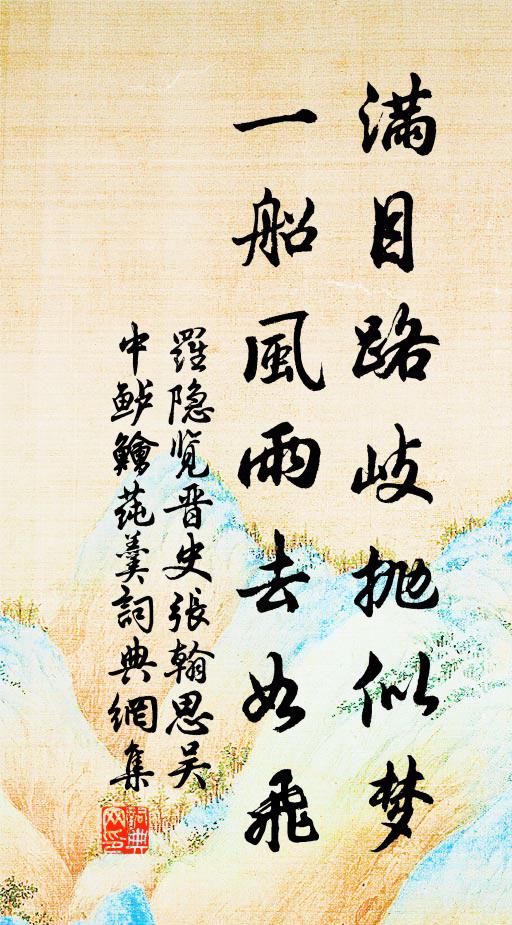 满目路歧抛似梦
一船風雨去如飛
羅隐览晋史張翰思吴
中鲈鱠莼羹詞典網集
詞典
网印